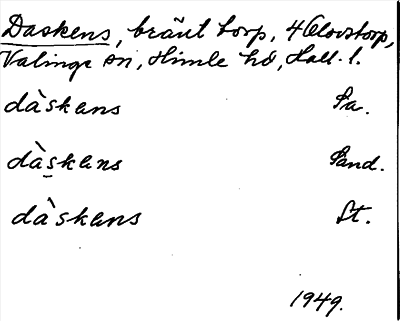 Daskens, bränt torp, 4 Olovstorp,
Valinge sn, Himle hd, Hall. l.
dàskans Sa.
dàskans Sand.
dàskans St.
1949.